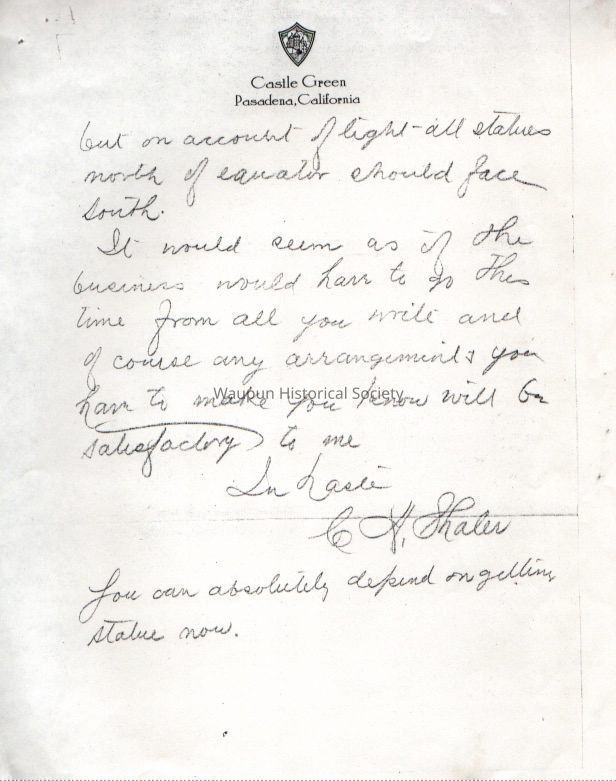 Castle Green
Pasadena, California
but on account of light - all statues
north of equator should face
South.
It would seem as if the
business would have to go this
time from all you write and
of course any arrangements you
have to make you know will be
Waupun Historical Society
satisfactory to me
In haste
C H, Shaler
You can absolutely depend on getting
statue now.